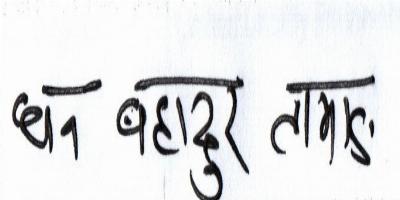 धन बहादुर तामाङ